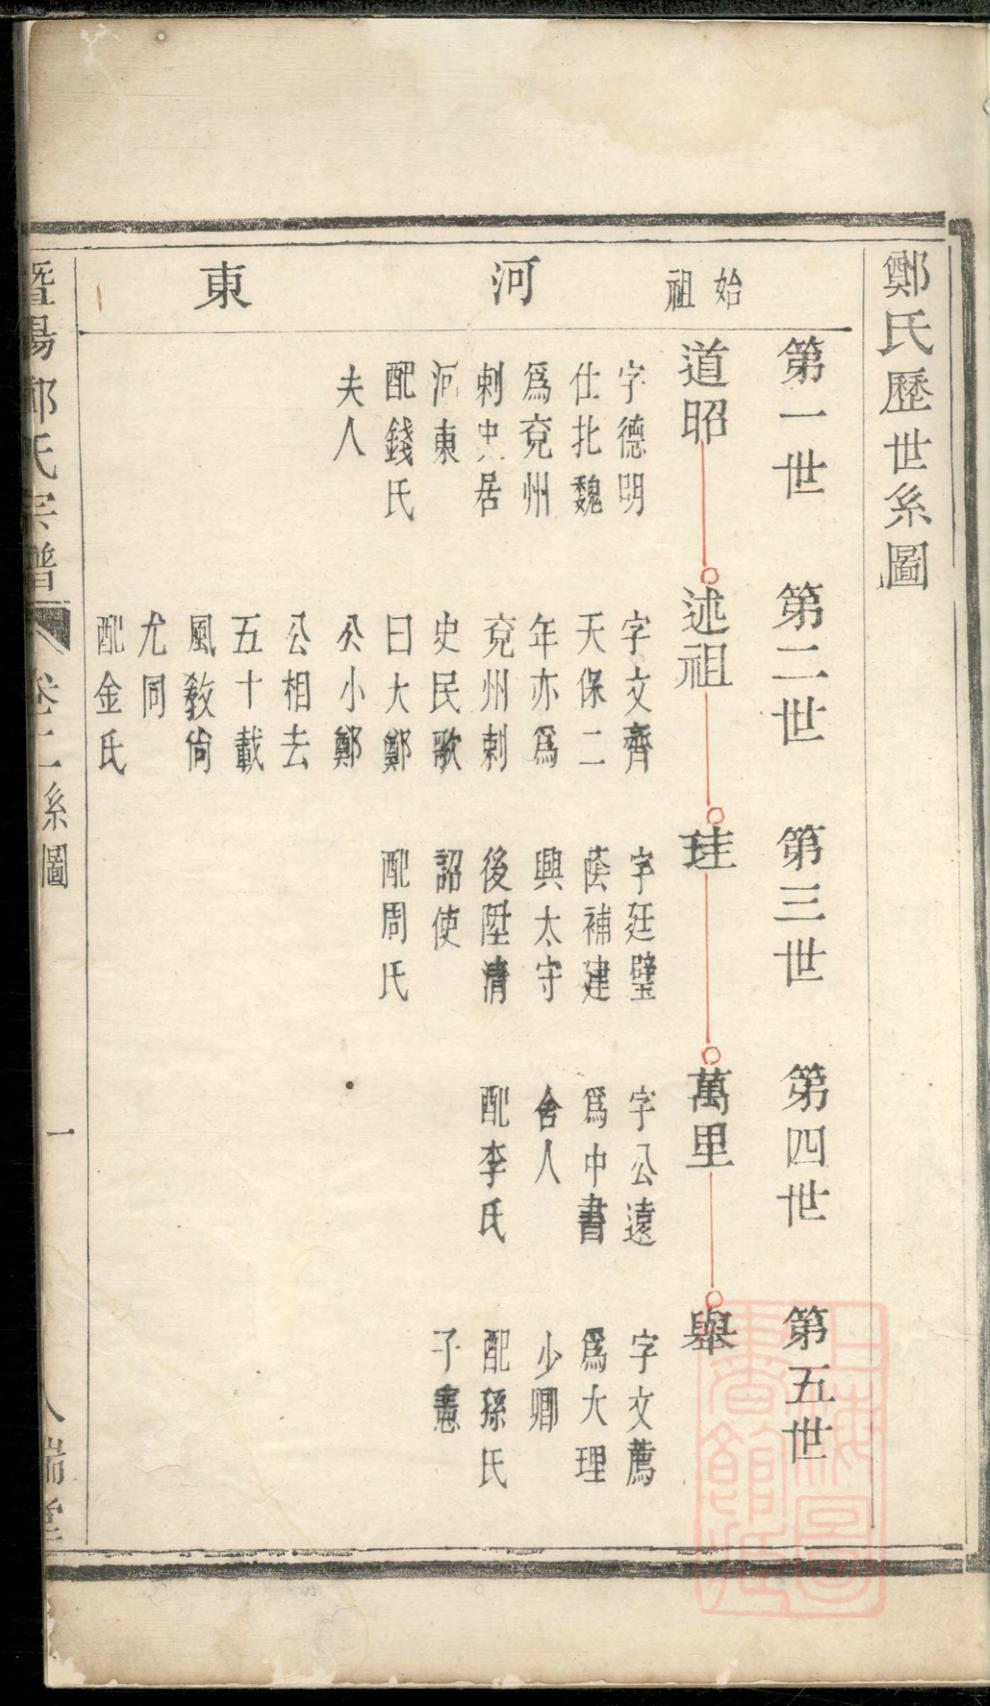 鄭氏歷世系圖
始祖
河東
第一世
道昭
字德明
仕北魏
爲兗州
刺史居
河東
配錢氏
夫人
第二世
述祖
字文齊
天保二
年亦爲
兗州刺
史民歌
曰大鄭
公小鄭
公相去
五十載
風敎尙
尤同
配金氏
第三世
珪
字廷璧
蔭補建
興太守
後陞清
詔使
配周氏
第四世
萬里
字公遠
爲中書
舍人
配李氏
第五世
舉
字文薦
爲大理
少卿
配孫氏
子憲
暨陽鄭氏宗譜
卷二系圖
一
人瑞堂
上海圖書館藏